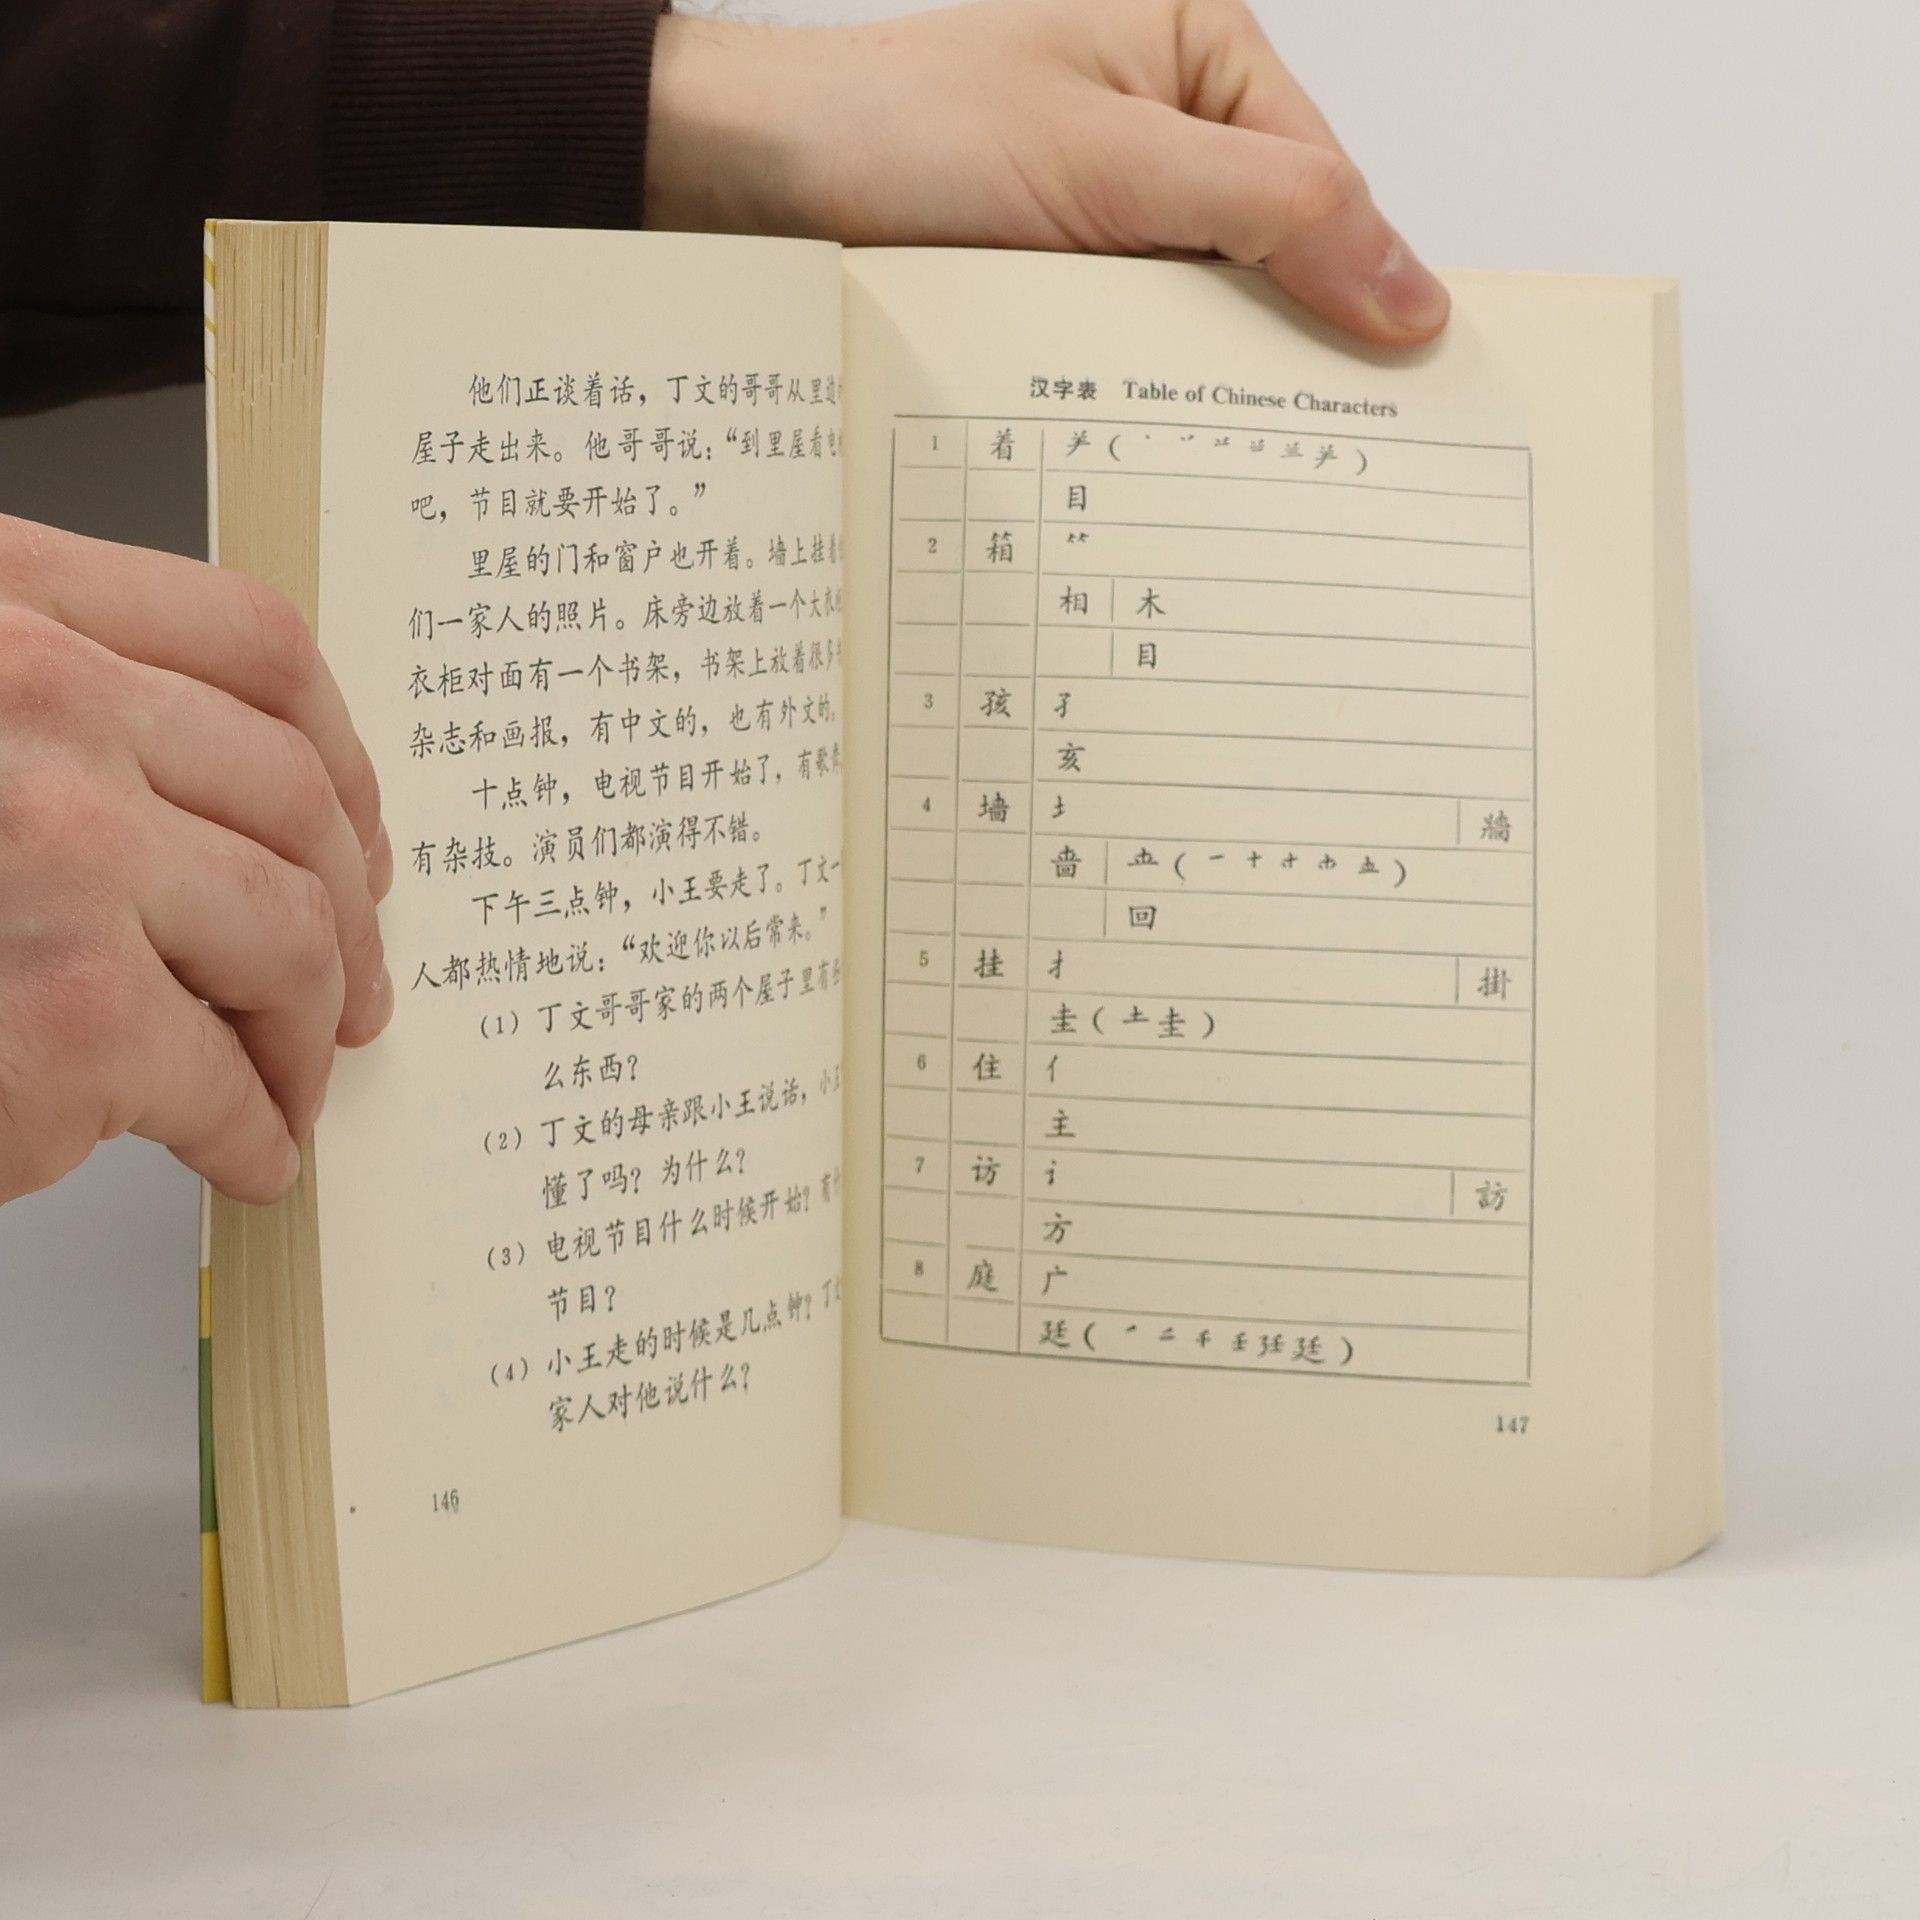 他们正谈着话，丁文的哥哥从里边
屋子走出来。他哥哥说：“到里屋看电
吧，节目就要开始了。”
里屋的门和窗户也开着。墙上挂着
们一家人的照片。床旁边放着一个大衣柜
衣柜对面有一个书架，书架上放着很多
杂志和画报，有中文的，也有外文的。
十点钟，电视节目开始了，有歌
有杂技。演员们都演得不错。
下午三点钟，小王要走了。丁文一
人都热情地说：“欢迎你以后常来。”
(1) 丁文哥哥家的两个屋子里有
么东西？
(2) 丁文的母亲跟小王说话，小王
懂了吗？为什么？
(3) 电视节目什么时候开始？有什
节目？
(4) 小王走的时候是几点钟？丁文
家人对他说什么？
146
汉字表 Table of Chinese Characters
1 着 ⺶ ( 丶 丷 )
目
2 箱 ⺮
相 木
目
3 孩 孑
亥
4 墙 土 牆
啬 ( 一 十 )
回
5 挂 扌 掛
圭 ( 土 圭 )
6 住 亻
主
7 访 讠 訪
方
8 庭 广
廷 ( ㇒ 二 千 壬 廷 )
147